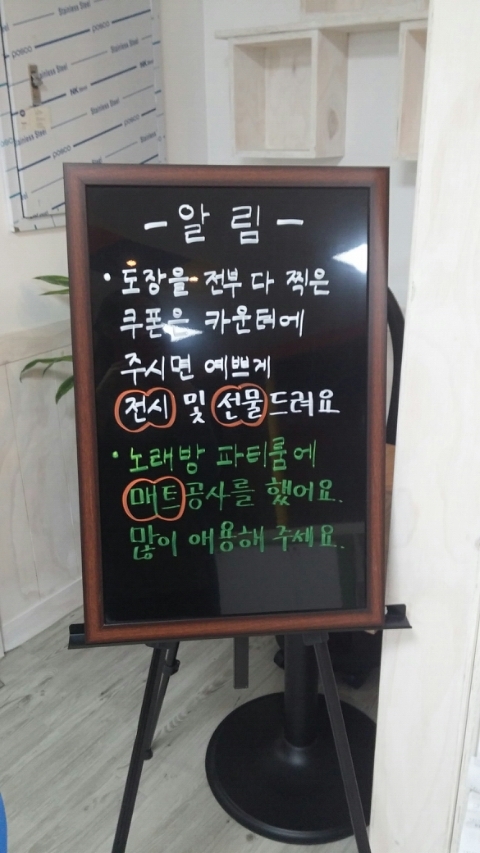 Stainless Steel
posco
Stainless Steel
NK
Stainless Steel
posco
- 알 림 -
• 도장을 전부 다 찍은
쿠폰은 카운터에
주시면 예쁘게
전시 및 선물드려요
• 노래방 파티룸에
매트공사를 했어요.
많이 애용해 주세요.